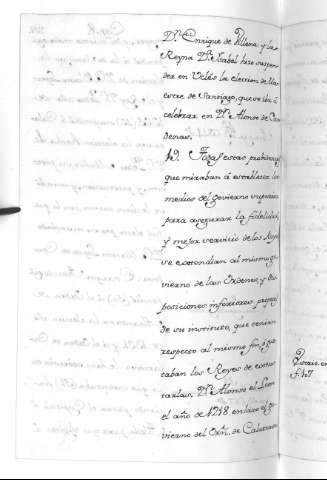 Dn. Enrique de Villena y la
Reyna Da. Isabel hizo suspen-
der en Uclés la eleccion de Ma-
estre de Santiago, que se iba á
celebrar en Dn. Alonso de Car-
denas.
19. Todas estas
que miraban á establecer los
medios del govierno superior
para asegurar la fidelidad,
y mejor servicio de los Reyes
se estendian al mismo go-
vierno de las Ordenes, y dis-
posiciones inferiores,
de su instituto, que tenian
respecto al mismo fin, ó
taban los Reyes de
Dn. Alonso de Leon
el año de 1218 en
vierno del Orn. de Calatrava
f. 47